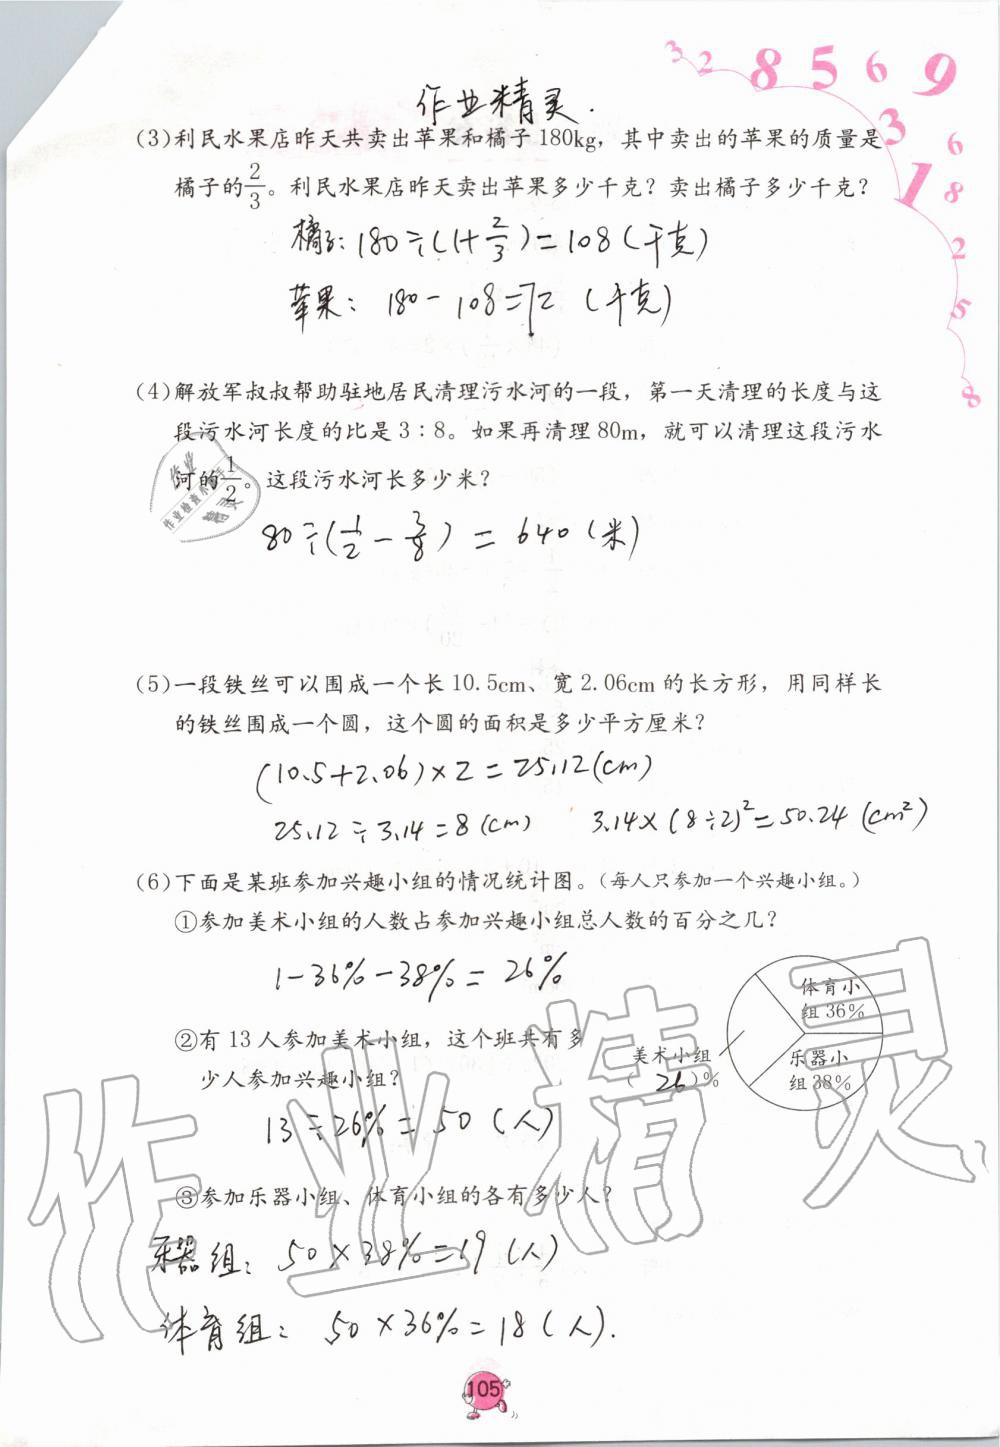 3 2 8 5 6 9 3 1 6 8 2 5 8
作业精灵.
(3)利民水果店昨天共卖出苹果和橘子180kg，其中卖出的苹果的质量是
橘子的2/3。利民水果店昨天卖出苹果多少千克？卖出橘子多少千克？
橘子: 180÷(1+2/3)=108(千克)
苹果: 180-108=72 (千克)
(4)解放军叔叔帮助驻地居民清理污水河的一段，第一天清理的长度与这
段污水河长度的比是3∶8。如果再清理80m，就可以清理这段污水
河的1/2。这段污水河长多少米？
作业
作业检查小助手
精灵
80÷(1/2-3/8)=640(米)
(5)一段铁丝可以围成一个长10.5cm、宽2.06cm的长方形，用同样长
的铁丝围成一个圆，这个圆的面积是多少平方厘米？
(10.5+2.06)×2=25.12(cm)
25.12÷3.14=8(cm) 3.14×(8÷2)²=50.24(cm²)
(6)下面是某班参加兴趣小组的情况统计图。(每人只参加一个兴趣小组。)
①参加美术小组的人数占参加兴趣小组总人数的百分之几？
1-36%-38%=26%
体育小
组36%
②有13人参加美术小组，这个班共有多
少人参加兴趣小组？
美术小组
(26)%
乐器小
组38%
13÷26%=50(人)
③参加乐器小组、体育小组的各有多少人？
乐器组: 50×38%=19(人)
体育组: 50×36%=18(人).
作业精灵
105